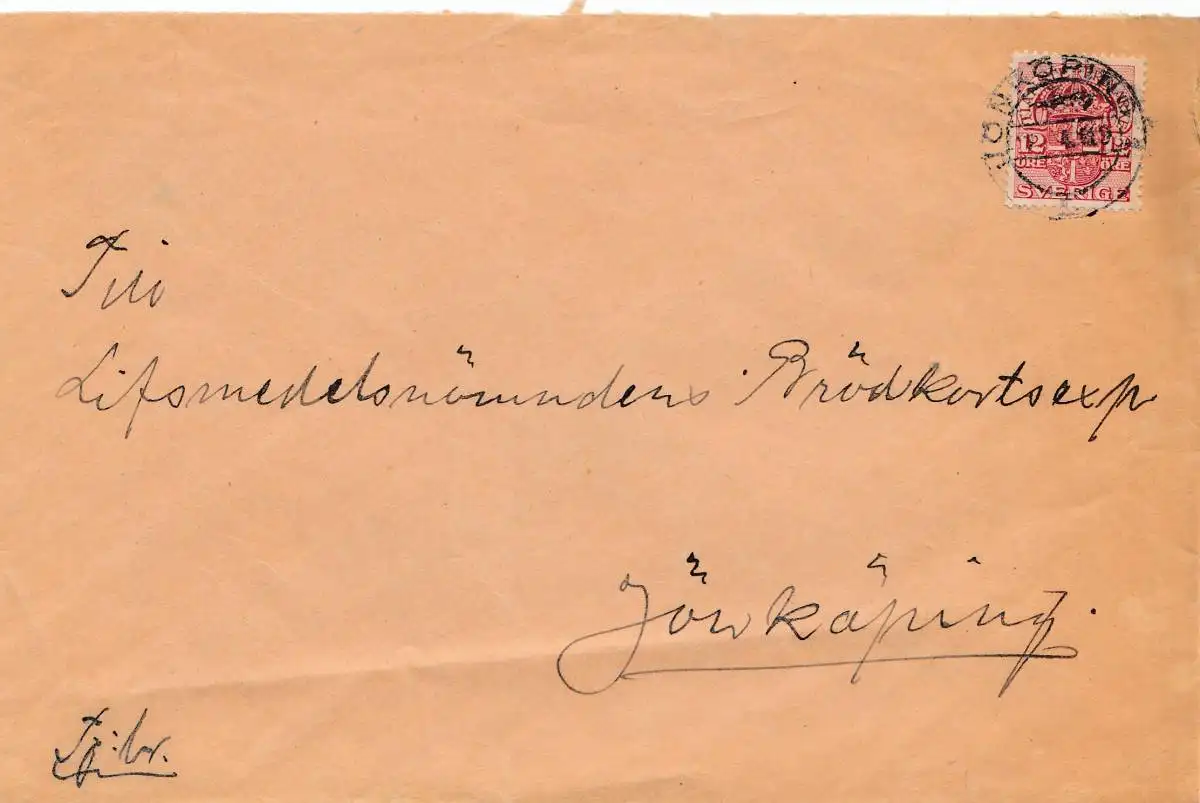 JÖNKÖPING
12
ÖRE ÖRE
SVERIGE
Till
Lifsmedelsnämndens Brödkortsexp.
Jönköping.
Tj.br.